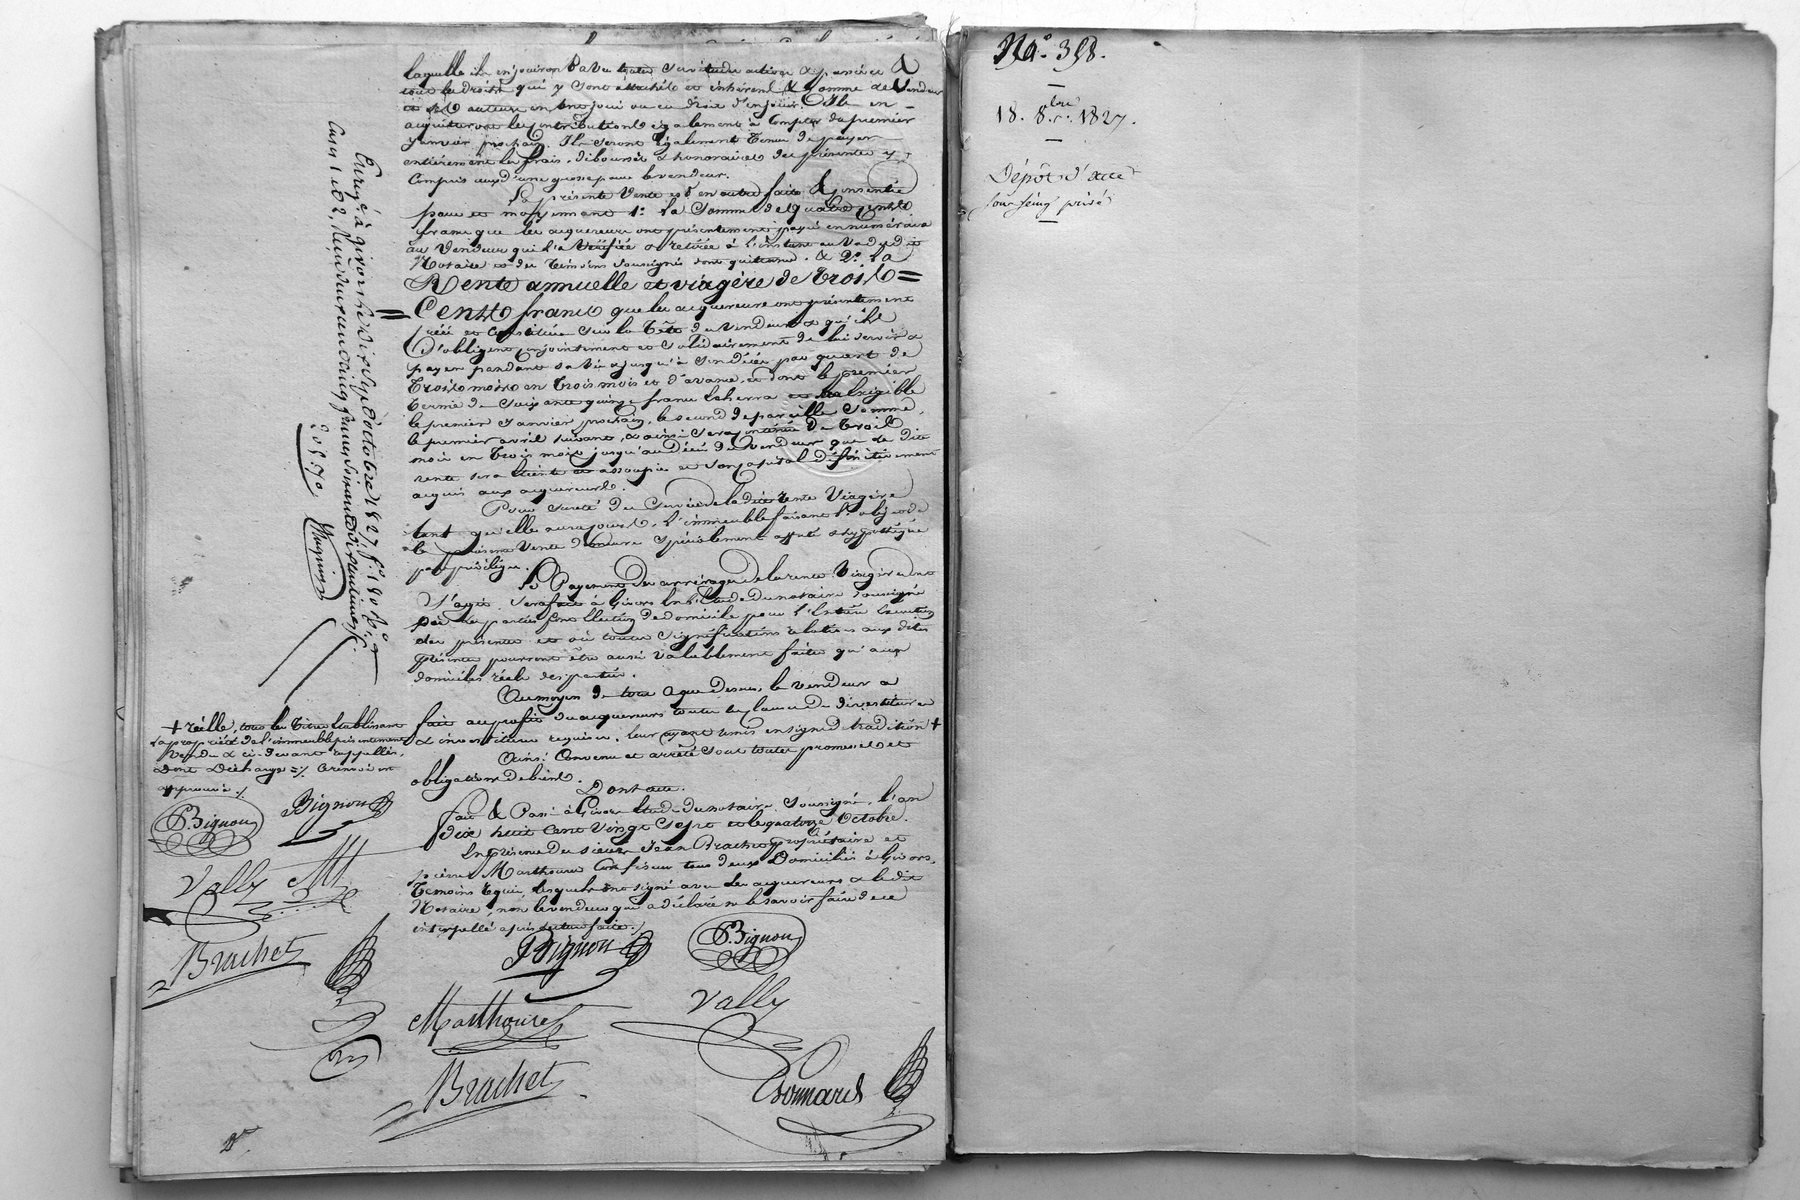 laquelle ils en jouiront avec toutes servitudes actives & passives &
tous les droits qui y sont attachés et inhérens & comme le vendeur
et ses auteurs en ont joui ou eu droit d'en jouir. Ils en
acquitteront les contributions également à compter du premier
janvier prochain. Ils seront également tenus de payer
entièrement les frais, déboursés & honoraires des présentes y
compris ceux d'une grosse pour le vendeur.
La présente vente est en outre faite & consentie
pour et moyennant 1.° la somme de quatre cents
francs que les acquéreurs ont présentement payé en numéraire
au vendeur qui l'a vérifiée & retirée à l'instant au vu du dit
Notaire et des témoins soussignés dont quittance. & 2.° la
Rente annuelle et viagère de trois =
= Cents francs que les acquéreurs ont présentement
créé et constituée sur la tête du vendeur & qu'ils
s'obligent conjointement et solidairement de lui servir &
payer pendant sa vie & jusqu'à son décès, par quart de
trois mois en trois mois et d'avance, et dont le premier
terme de soixante quinze francs écherra et sera exigible
le premier janvier prochain, le second de pareille somme,
le premier avril suivant, & ainsi sera continué de trois
mois en trois mois jusqu'au décès du vendeur que de dite
rente sera éteinte et assoupie et son capital définitivement
acquis aux acquéreurs.
Pour sureté du service de la dite rente viagère
tant qu'elle aura cours, l'immeuble faisant l'objet de
la présente vente demeure spécialement affecté & hypothéqué
par privilège.
Le Payement des arrérages de la rente viagère dont
s'agit, sera fait à Givors en l'étude du notaire soussigné
où les parties font élection de domicile pour l'entière exécution
des présentes et où toutes significations relatives aux dites
présentes pourront être aussi valablement faites qu'aux
domiciles réels des parties.
Au moyen de tout ce que dessus, le vendeur a
fait au profit des acquéreurs toutes les clauses de divestiture
& investiture requises, leur ayant remis en signe de tradition +
Ainsi convenu et arrêté sous toutes promesses et
obligations de biens.
Dont acte.
Fait & Passé à Givors étude du notaire soussigné, l'an
dix huit cent vingt sept et le quatorze octobre.
En présence des sieurs Jean Brachet propriétaire et
pierre Marthoure Confiseur tous deux Domiciliés à Givors,
Témoins requis, lesquels ont signé avec les acquéreurs & le dit
Notaire, non le vendeur qui a déclaré ne le savoir faire de ce
interpellé après lecture faite.
Bignon
P. Bignon
Marthoure
Vally
Brachet
Bonnard
+ réelle, tous les titres établissant
la propriété de l'immeuble présentement
vendu & ci-devant rappellés,
dont décharge =/. & renvoi
approuvé /.
P. Bignon
Bignon
Vally
M
Brachet
Enreg.é à givors le dix sept octobre 1827 f.°
Cases 1 et 2, Reçu
20 f 57 c
N.° 358.
18. 8.bre 1827.
Dépôt d'acte
sous seing privé